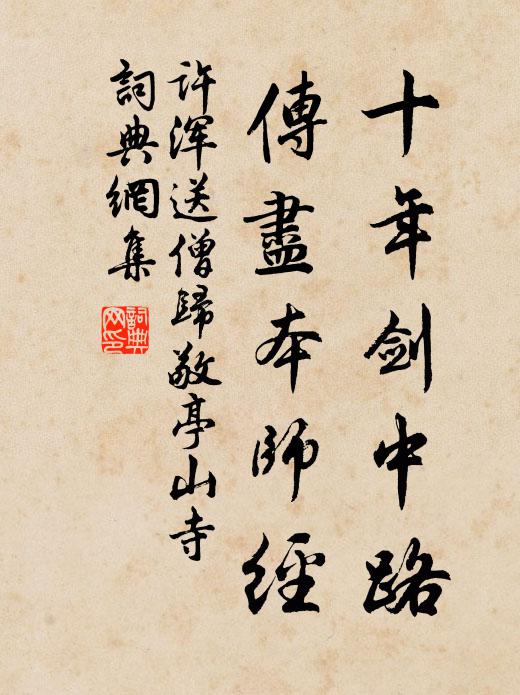 十年劍中路
傳盡本師經
许浑送僧歸敬亭山寺
詞典網集
詞典网印